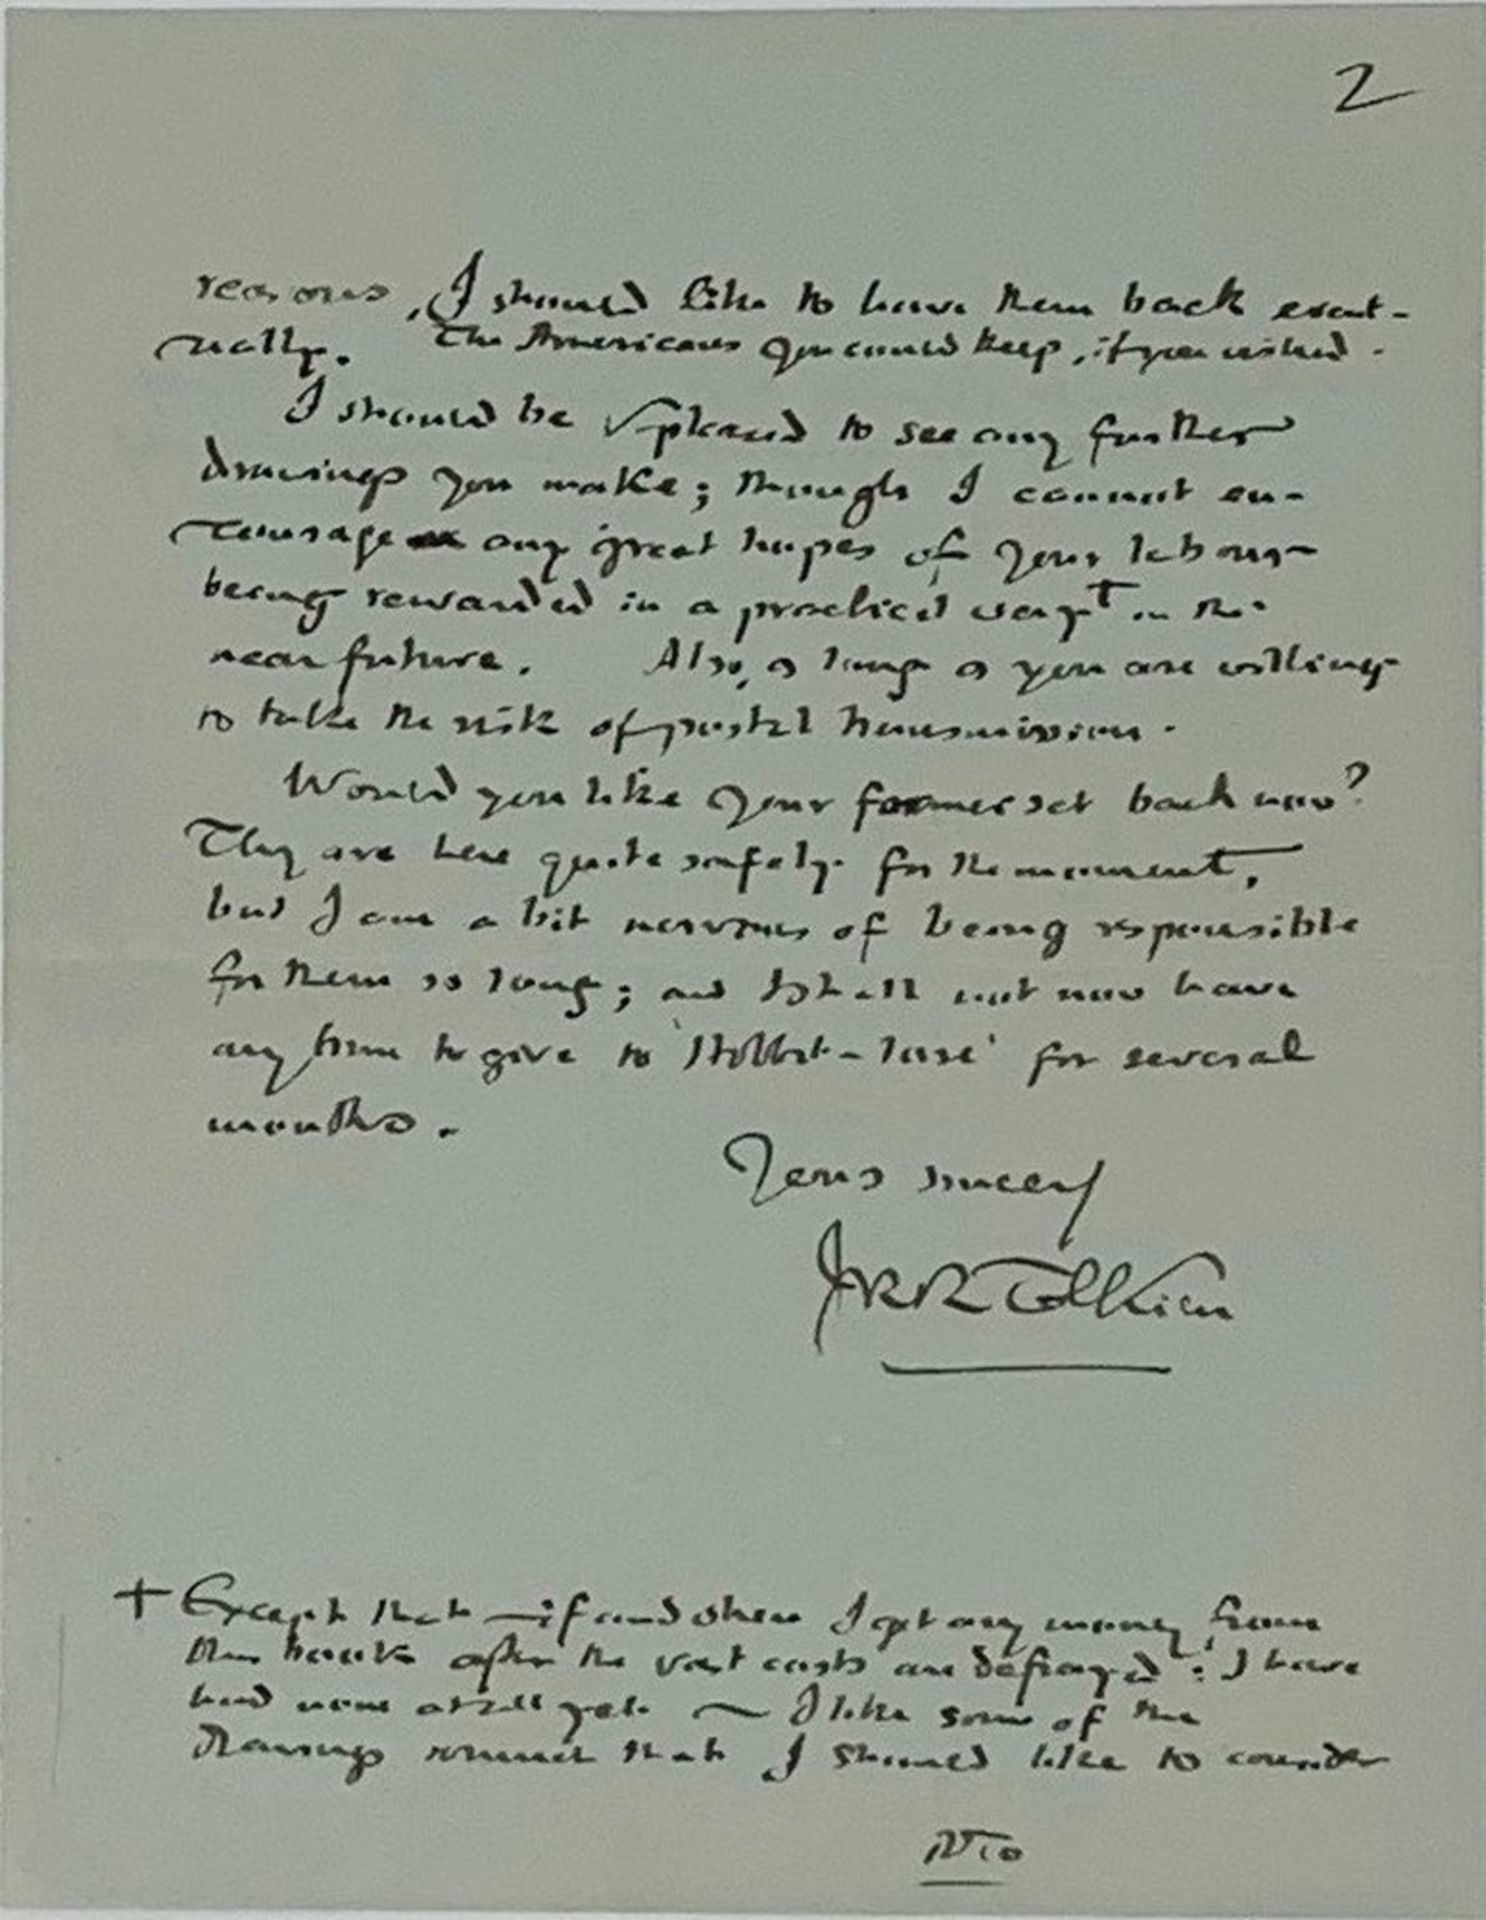 2
reasons, I should like to have them back event-
ually. The Americans you could keep, if you wished.
I should be v. pleased to see any further
drawings you make; though I cannot en-
courage any great hopes of your labour
being rewarded in a practical way† in the
near future. Also, as long as you are willing
to take the risk of postal transmission.
Would you like your former set back now?
They are here quite safely for the moment,
but I am a bit nervous of being responsible
for them so long; and I shall not now have
any time to give to 'Hobbit-lore' for several
months.
Yours sincerely
JRR Tolkien
+ Except that — if and when I get any money from
the books after the vast costs are defrayed: I have
had none at all yet — I like some of the
drawings so much that I should like to consider
PTO